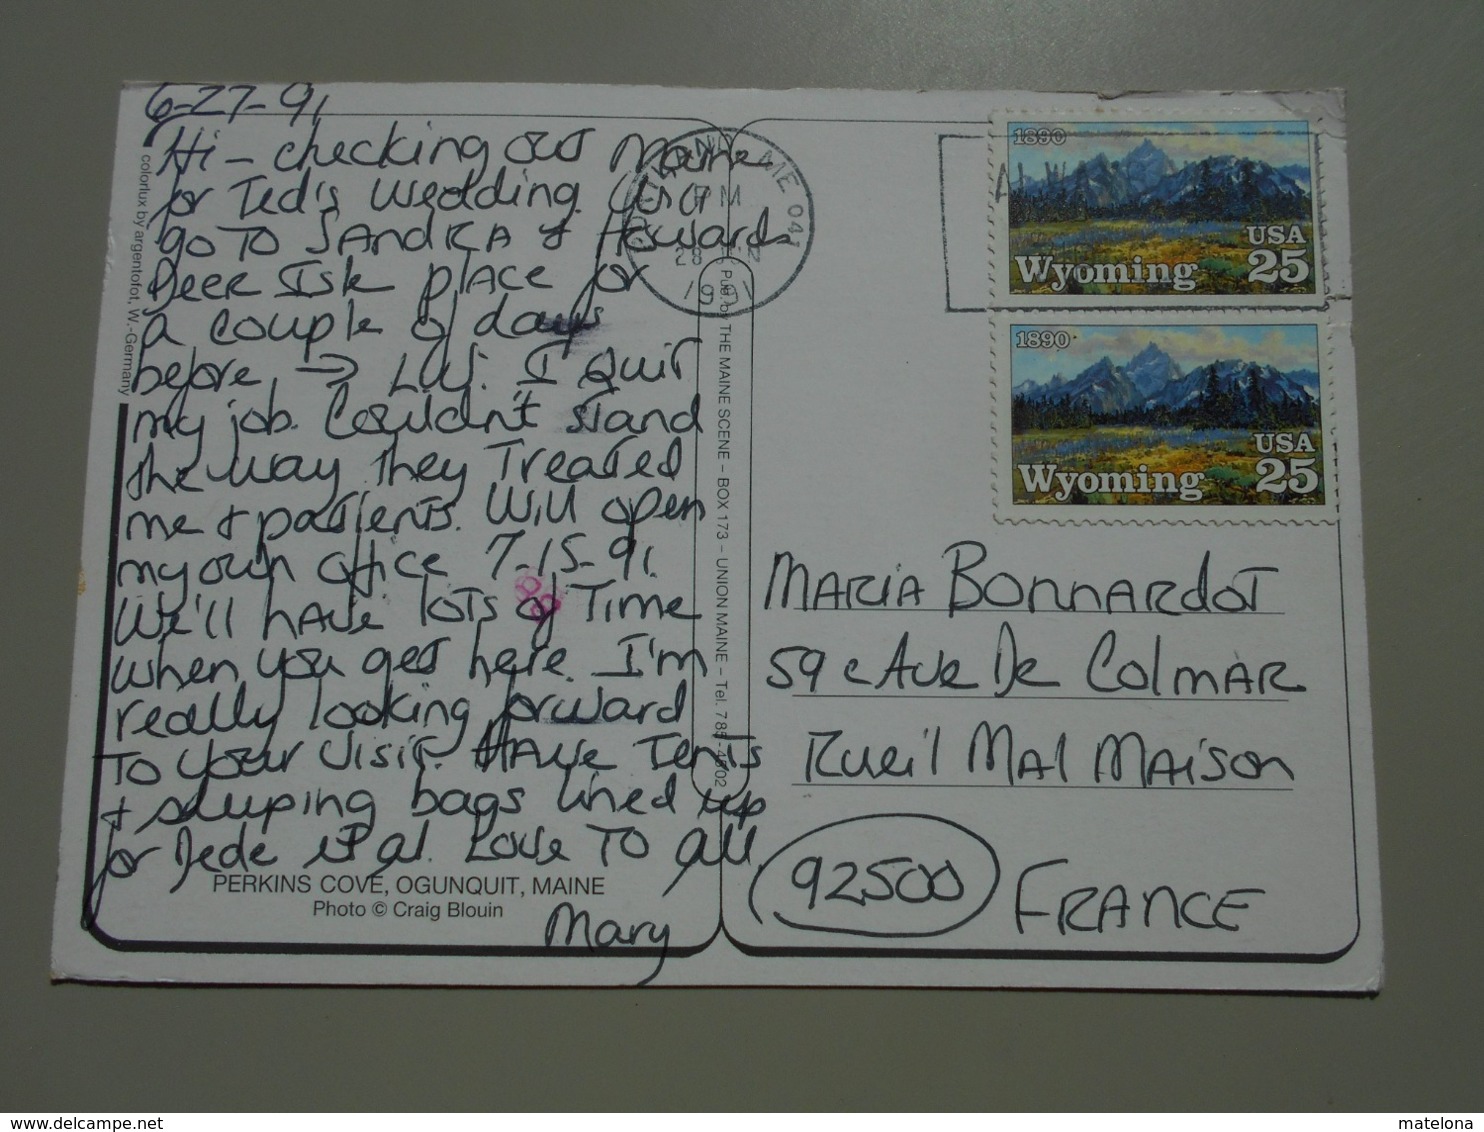 6-27-91
Hi - checking out Maine
for Ted's wedding. Will
go To SANdRA & Howards
Deer Isle place for
a couple of days
before → Luv. I quit
my job. Couldn't stand
the way they Treated
me & patients. Will open
my own office 7-15-91.
We'll have lots of Time
when you get here. I'm
really looking forward
To your visit. HAVE Tents
& sleeping bags lined up
for Dede et al. Love To all,
Mary
PERKINS COVE, OGUNQUIT, MAINE
Photo © Craig Blouin
colorlux by argentofot, W.-Germany
Pub. by THE MAINE SCENE – BOX 173 – UNION MAINE – Tel. 785-4502
ME 04
PM
28
1991
1890
USA
Wyoming 25
1890
USA
Wyoming 25
MARIA BONNARdOT
59 Ave De COlMAR
Rueil MAl MAison
92500 FRANCE
88
matelona